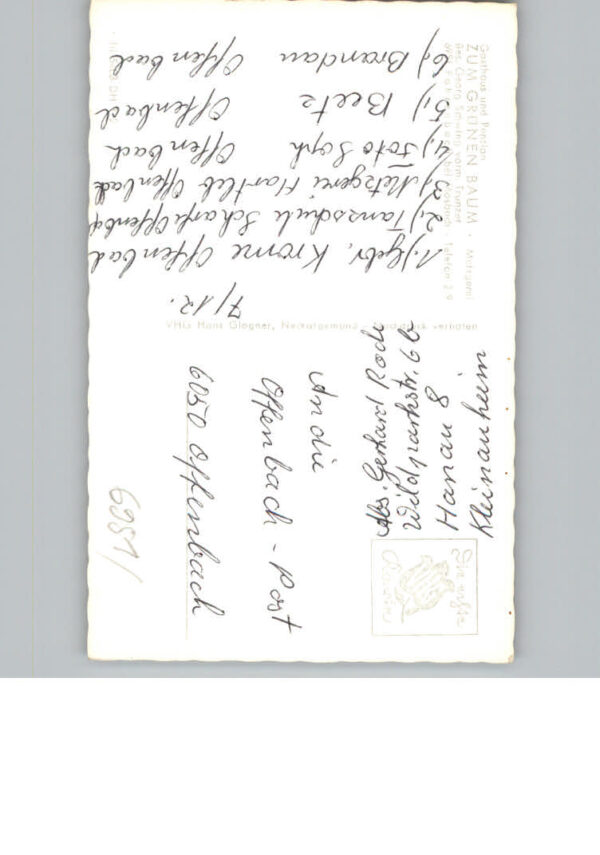 Gasthaus und Pension
ZUM GRÜNEN BAUM · Metzgerei
Bes. Georg
Telefon 2 9
1.) Gebr. Krome Offenbach
2.) Tanzschule Scharf Offenbach
3.) Metzgerei Hartleb Offenbach
4.) Foto Offenbach
5.) Beetz Offenbach
6.) Brandau Offenbach
7/12.
VHG Hans Glogner, Neckargemünd · Nachdruck verboten
Abs. Gerhard Rode
Wildparkstr. 6b
Hanau 8
Kleinauheim
An die
Offenbach-Post
6050 Offenbach
6951/